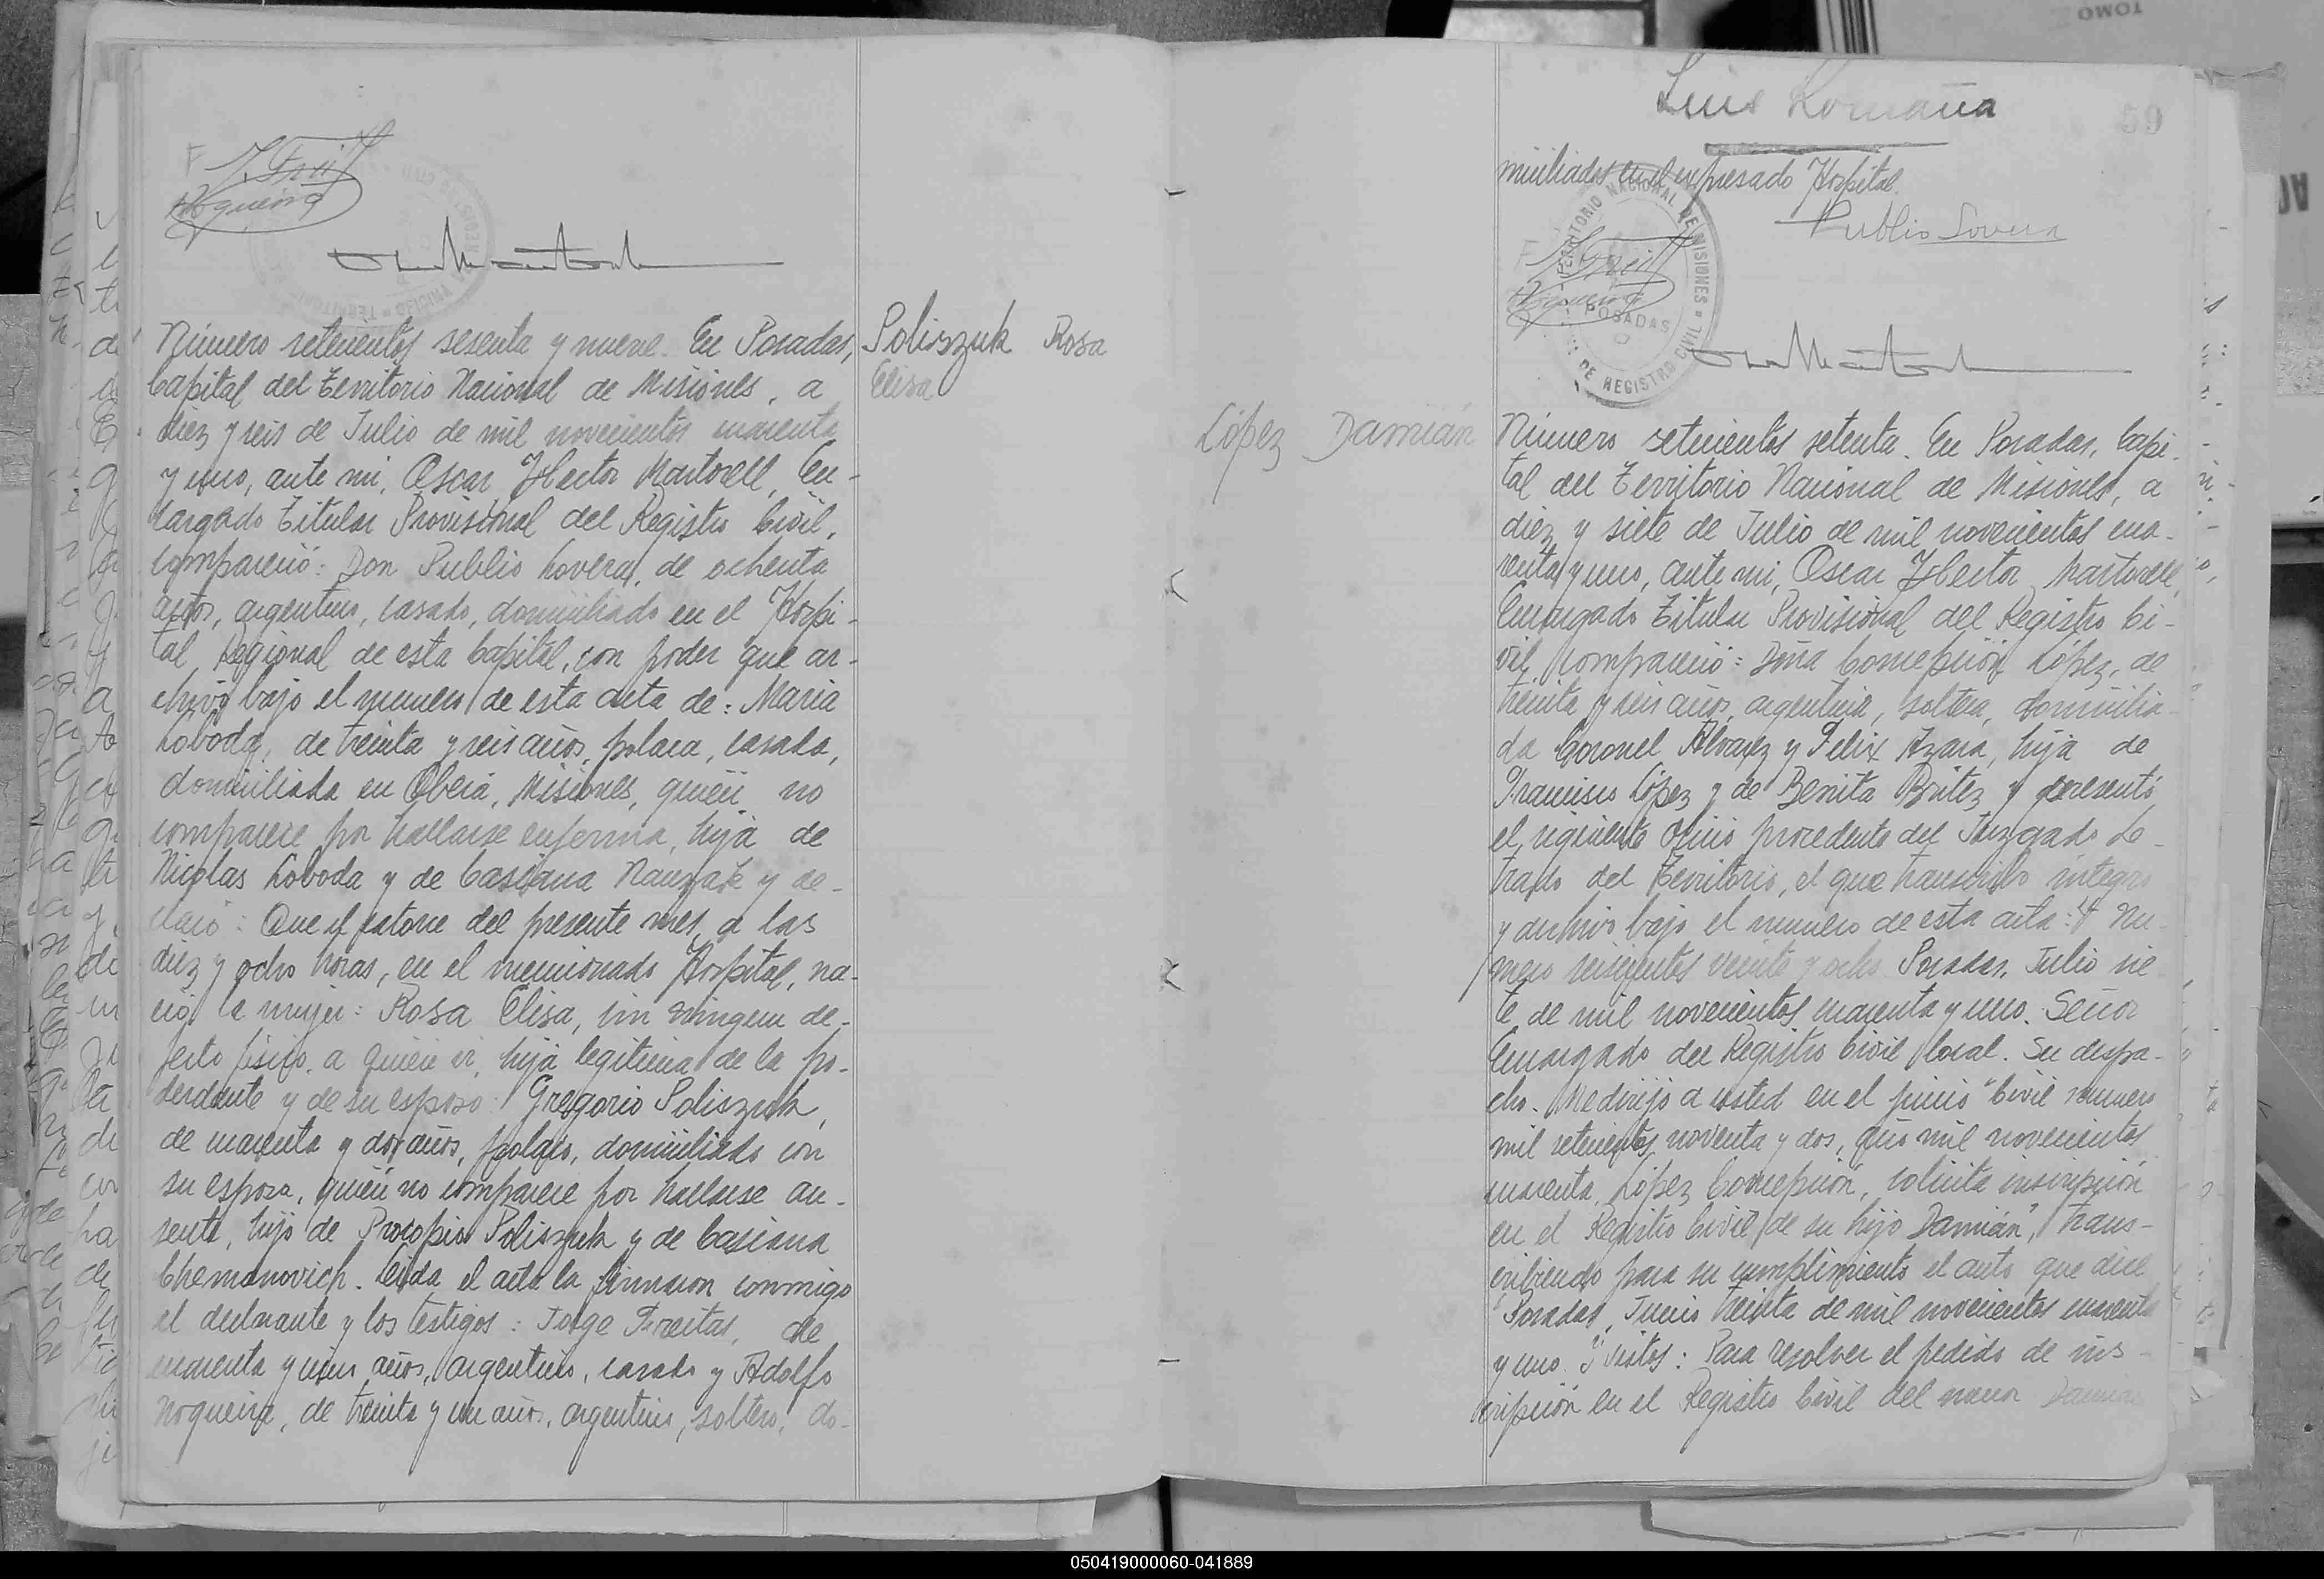 J. Freit
ANogueira
Número setecientos sesenta y nueve. En Posadas,
Poliszuk Rosa
Elisa
Capital del Territorio Nacional de Misiones, a
diez y seis de Julio de mil novecientos cuarenta
y uno, ante mi, Oscar Hector Martorell, En-
cargado Titular Provisional del Registro Civil,
compareció: Don Publio Lovera, de ochenta
años, argentino, casado, domiciliado en el Hospi-
tal Regional de esta Capital, con poder que ar-
chivo bajo el numero de esta acta de: Maria
Loboda, de treinta y seis años, polaca, casada,
domiciliada en Oberá, Misiones, quien no
comparece por hallarse enferma, hija de
Nicolas Loboda y de Casiana y de-
claró: Que el catorce del presente mes, a las
diez y ocho horas, en el mencionado Hospital, na-
ció la mujer: Rosa Elisa, sin ningun de-
fecto fisico, a quien vi, hija legitima de la po-
derdante y de su esposo: Gregorio Poliszuk,
de cuarenta y dos años, polaco, domiciliado con
su esposa, quien no comparece por hallarse au-
sente, hijo de Procopio Poliszuk y de Casiana
Chemanovich. Leida el acta la firmaron conmigo
el declarante y los testigos: Jorge Freitas, de
cuarenta y cinco años, argentino, casado y Adolfo
Nogueira, de treinta y un años, argentino, soltero, do-
Luis Romaña
59
miciliados en el expresado Hospital.
Publio Lovera
TERRITORIO NACIONAL DE MISIONES
POSADAS
DE REGISTRO CIVIL
López Damián
Número setecientos setenta. En Posadas, Capi-
tal del Territorio Nacional de Misiones, a
diez y siete de Julio de mil novecientos cua-
renta y uno, ante mi, Oscar Hector Martorell,
Encargado Titular Provisional del Registro Ci-
vil, compareció: Doña Concepción López, de
treinta y seis años, argentina, soltera, domicilia-
da Coronel Alvarez y Felix Azara, hija de
Francisco López y de Benita Britez y presentó
el siguiente oficio procedente del Juzgado Le-
trado del Territorio, el que transcribo integro
y archivo bajo el numero de esta acta: " Nu-
mero seiscientos veinte y ocho Posadas, Julio sie-
te de mil novecientos cuarenta y uno. Señor
Encargado del Registro Civil local. Su despa-
cho. Me dirijo a usted en el juicio "Civil numero
mil setecientos noventa y dos, año mil novecientos
cuarenta, López Concepción, solicita inscripción
en el Registro Civil de su hijo Damián", trans-
cribiendo para su cumplimiento el auto que dice
"Posadas, Junio treinta de mil novecientos cuarenta
y uno. Y Vistos: Para resolver el pedido de ins-
cripción en el Registro Civil del menor Damian
050419000060-041889